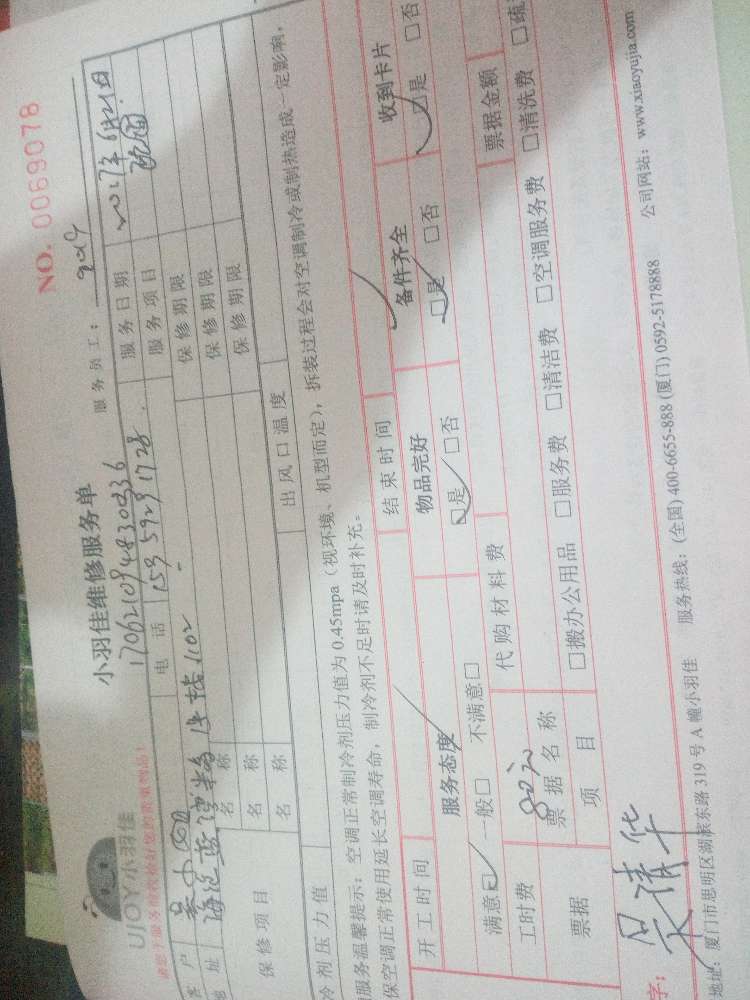 NO. 0069078
UJOY小羽佳
小羽佳维修服务单
服务员工:
170621094830336
客户
电话 159 5929 1728
服务日期 2017年6月21日
地址
服务项目
保修项目
名称
保修期限
名称
保修期限
名称
保修期限
冷剂压力值
出风口温度
服务温馨提示:空调正常制冷剂压力值为0.45mpa(视环境、机型而定),拆装过程会对空调制冷或制热造成一定影响,
保空调正常使用延长空调寿命,制冷剂不足时请及时补充。
开工时间
结束时间
服务态度
物品完好
备件齐全
收到卡片
满意☑ 一般□ 不满意□
☑是 □否
☑是 □否
☑是 □否
工时费 80元
代购材料费
票据金额
票据
票据名称
项目
□搬办公用品 □服务费 □清洁费 □空调服务费 □清洗费 □疏
字: 吴清华
地址:厦门市思明区湖滨东路319号A幢小羽佳 服务热线:(全国)400-6655-888 (厦门)0592-5178888 公司网站:www.xiaoyujia.com